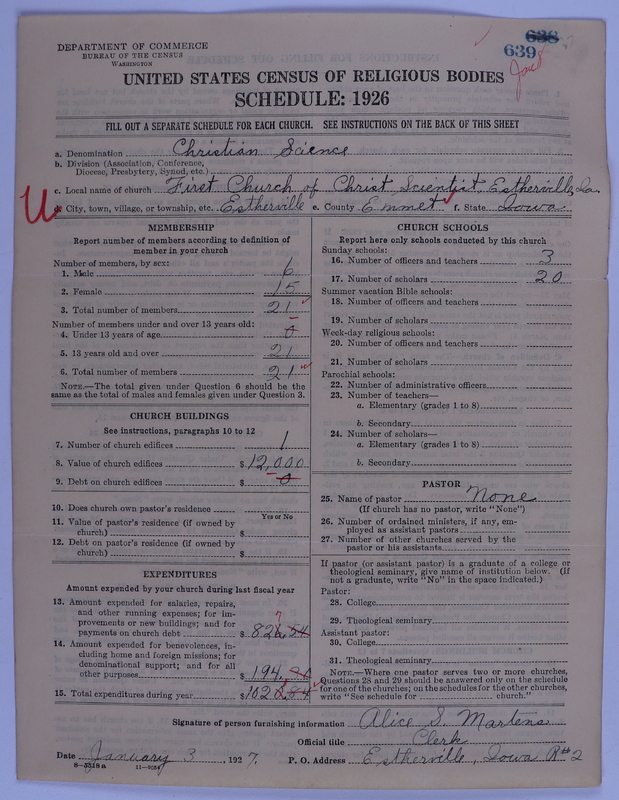 638
639
Jan 8
DEPARTMENT OF COMMERCE
BUREAU OF THE CENSUS
WASHINGTON
UNITED STATES CENSUS OF RELIGIOUS BODIES
SCHEDULE: 1926
FILL OUT A SEPARATE SCHEDULE FOR EACH CHURCH. SEE INSTRUCTIONS ON THE BACK OF THIS SHEET
a. Denomination Christian Science
b. Division (Association, Conference,
Diocese, Presbytery, Synod, etc.)
c. Local name of church First Church of Christ Scientist, Estherville, Ia
U
d. City, town, village, or township, etc. Estherville e. County Emmet f. State Iowa
MEMBERSHIP
Report number of members according to definition of
member in your church
Number of members, by sex:
1. Male 6
2. Female 15
3. Total number of members 21
Number of members under and over 13 years old:
4. Under 13 years of age 0
5. 13 years old and over 21
6. Total number of members 21
NOTE.—The total given under Question 6 should be the
same as the total of males and females given under Question 3.
CHURCH BUILDINGS
See instructions, paragraphs 10 to 12
7. Number of church edifices 1
8. Value of church edifices $12,000
9. Debt on church edifices $ 0
10. Does church own pastor's residence
Yes or No
11. Value of pastor's residence (if owned by
church) $
12. Debt on pastor's residence (if owned by
church) $
EXPENDITURES
Amount expended by your church during last fiscal year
13. Amount expended for salaries, repairs,
and other running expenses; for im-
provements or new buildings; and for
payments on church debt $826.54
7
14. Amount expended for benevolences, in-
cluding home and foreign missions; for
denominational support; and for all
other purposes $194.
15. Total expenditures during year $102
CHURCH SCHOOLS
Report here only schools conducted by this church
Sunday schools:
16. Number of officers and teachers 3
17. Number of scholars 20
Summer vacation Bible schools:
18. Number of officers and teachers
19. Number of scholars
Week-day religious schools:
20. Number of officers and teachers
21. Number of scholars
Parochial schools:
22. Number of administrative officers
23. Number of teachers—
a. Elementary (grades 1 to 8)
b. Secondary
24. Number of scholars—
a. Elementary (grades 1 to 8)
b. Secondary
PASTOR
25. Name of pastor None
(If church has no pastor, write "None")
26. Number of ordained ministers, if any, em-
ployed as assistant pastors
27. Number of other churches served by the
pastor or his assistants
If pastor (or assistant pastor) is a graduate of a college or
theological seminary, give name of institution below. (If
not a graduate, write "No" in the space indicated.)
Pastor:
28. College
29. Theological seminary
Assistant pastor:
30. College
31. Theological seminary
NOTE.—Where one pastor serves two or more churches,
Questions 28 and 29 should be answered only on the schedule
for one of the churches; on the schedules for the other churches,
write "See schedule for church."
Signature of person furnishing information Alice S. Martens
Official title Clerk
Date January 3, 1927. P. O. Address Estherville, Iowa R#2
8-5518a 11-9084